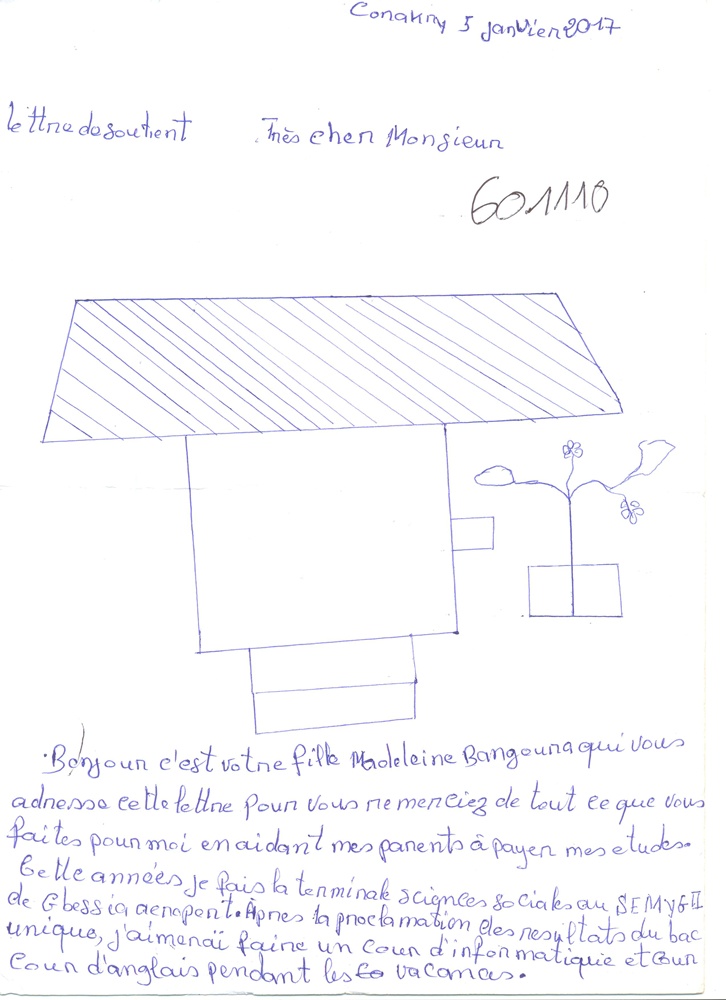 Conakry 5 janvier 2017
lettre de soutient
Très cher Monsieur
601110
Bonjour c'est votre fille Madeleine Bangoura qui vous
adresse cette lettre pour vous remerciez de tout ce que vous
faites pour moi en aidant mes parents à payer mes etudes.
Cette années je fais la terminale sciences sociales au
de Gbessia aeroport. Après la proclamation des resultats du bac
unique, j'aimerai faire un cour d'informatique et un
Cour d'anglais pendant les vacances.